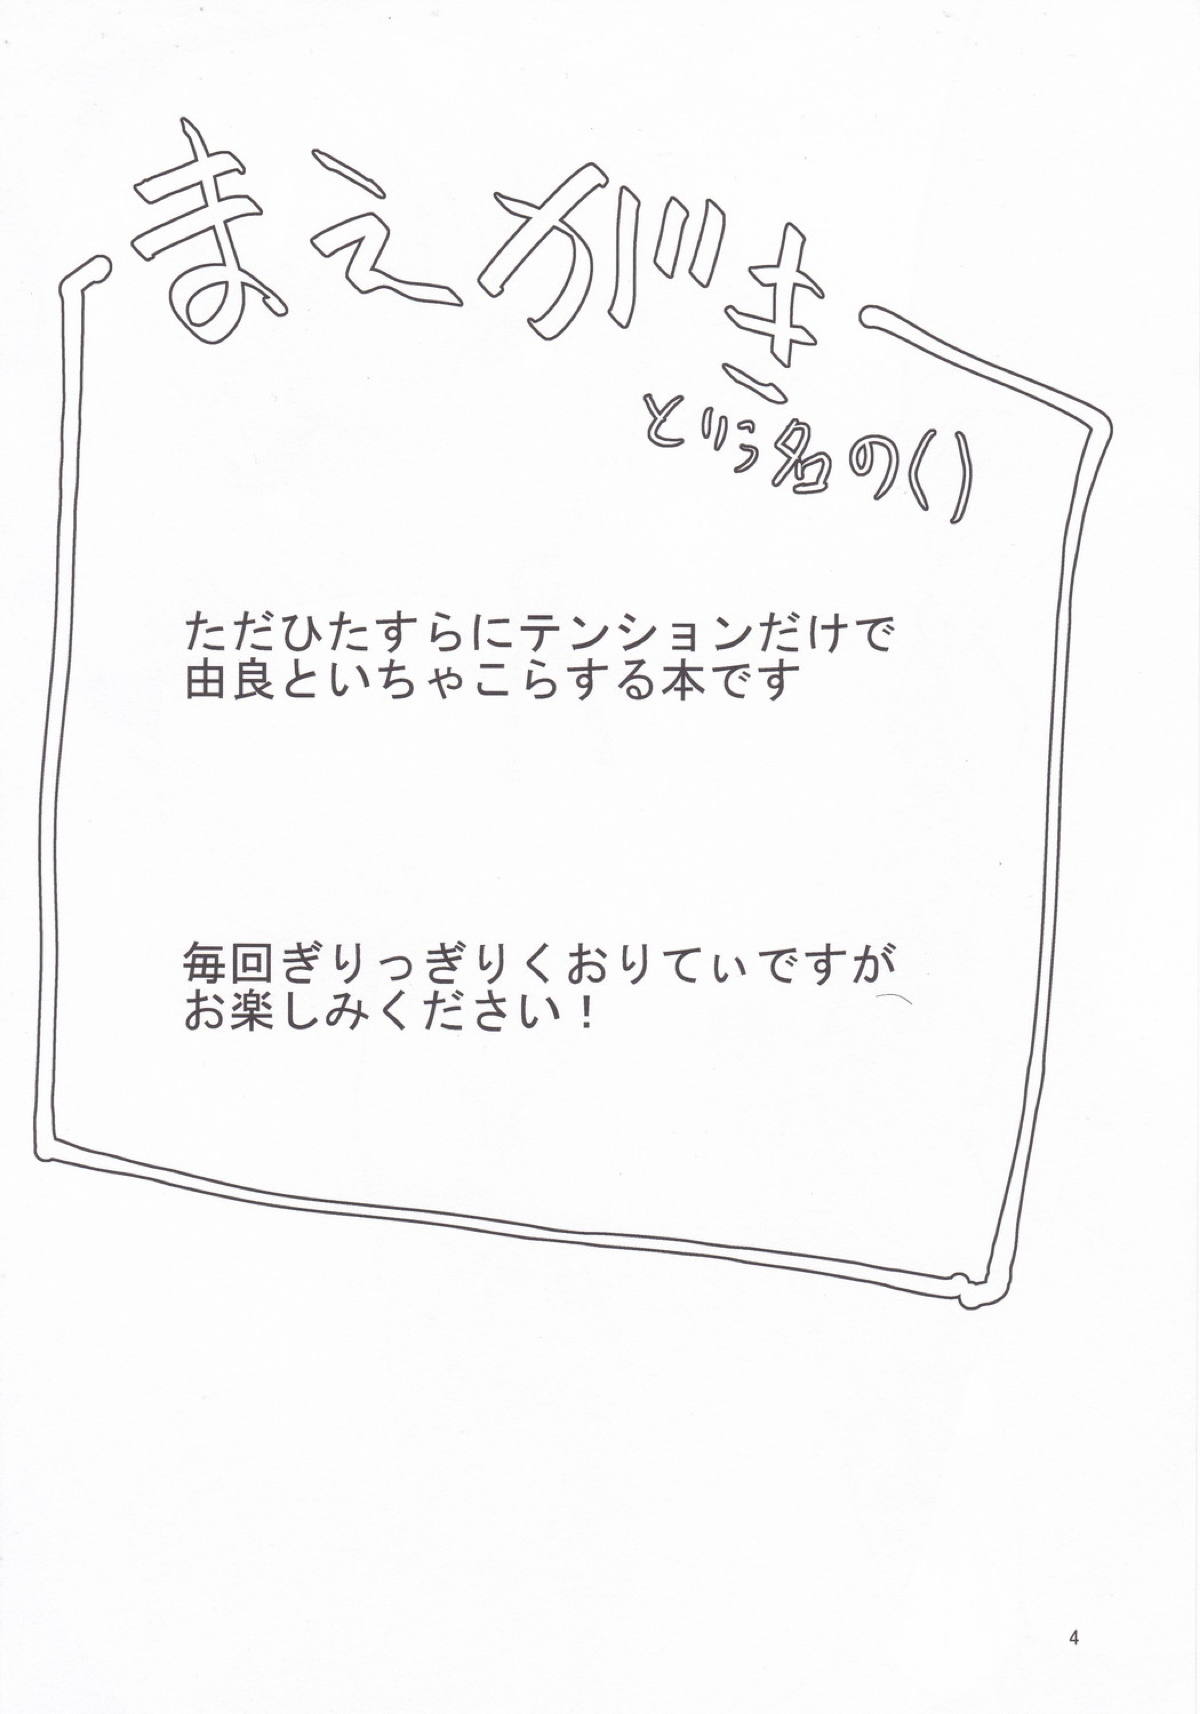 まえがき
という名の()
ただひたすらにテンションだけで
由良といちゃこらする本です
毎回ぎりっぎりくおりてぃですが
お楽しみください！
4